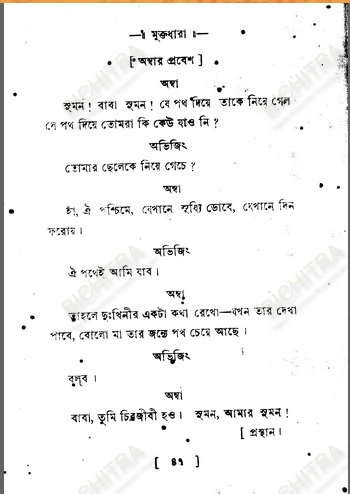 মুক্তধারা
[ অম্বার প্রবেশ ]
অম্বা
সুমন! বাবা সুমন! যে পথ দিয়ে তাকে নিয়ে গেল
সে পথ দিয়ে তোমরা কি কেউ যাও নি?
অভিজিৎ
তোমার ছেলেকে নিয়ে গেচে?
অম্বা
হাঁ, ঐ পশ্চিমে, যেখানে সূয্যি ডোবে, যেখানে দিন
ফরোয়।
অভিজিৎ
ঐ পথেই আমি যাব।
অম্বা
তাহলে দুঃখিনীর একটা কথা রেখো—যখন তার দেখা
পাবে, বোলো মা তার জন্যে পথ চেয়ে আছে।
অভিজিৎ
বলব।
অম্বা
বাবা, তুমি চিরজীবী হও। সুমন, আমার সুমন!
[ প্রস্থান।
[ ৪৭ ]
BICHITRA
BICHITRA
BICHITRA
BICHITRA
BICHITRA